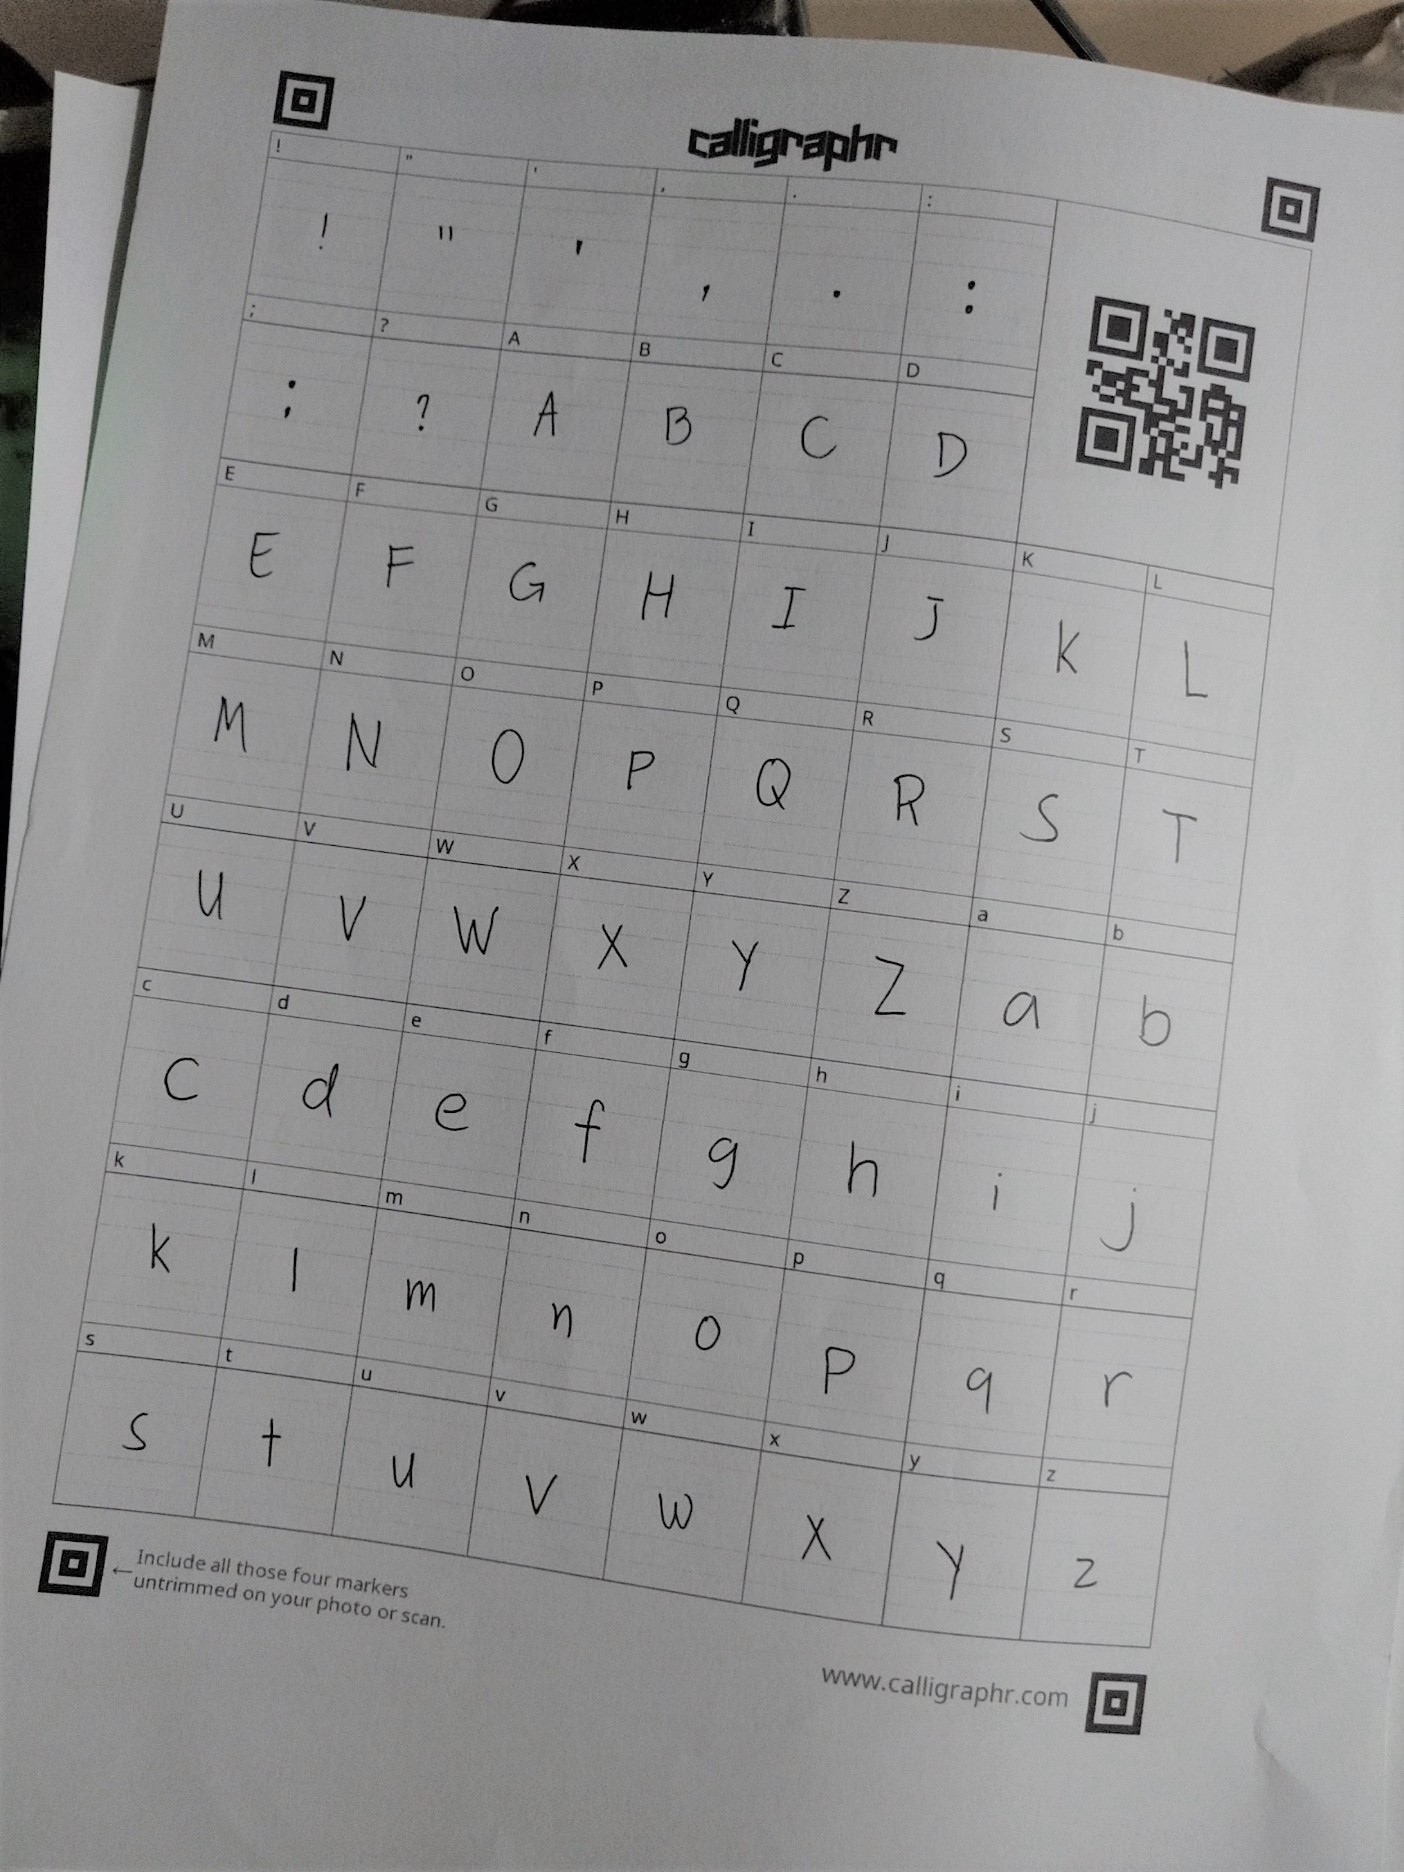 calligraphr
! " ' , . :
! " ' , . :
; ? A B C D
; ? A B C D
E F G H I J K L
E F G H I J K L
M N O P Q R S T
M N O P Q R S T
U V W X Y Z a b
U V W X Y Z a b
c d e f g h i j
c d e f g h i j
k l m n o p q r
k l m n o p q r
s t u v w x y z
s t u v w x y z
←Include all those four markers
untrimmed on your photo or scan.
www.calligraphr.com